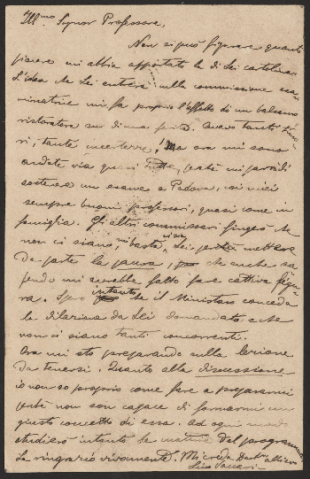 Ill.mo Signor Professore,
Non si può figurare quanto
piacere mi abbia apportato la di Lei cartolina
L'idea che Lei entrerà nella commissione esa-
minatrice mi fa proprio l'effetto di un balsamo
ristoratore su di una
tante incertezze, Ma ora mi sono
andate via quasi tutte, perchè mi parrà di
sostenere un esame a Padova,
sempre buoni professori, quasi come in
famiglia. Gli altri commissari fingerò che
non ci siano, mi basta Lei per mettere
da parte la paura, che anche
mi avrebbe fatto fare cattiva figu-
ra. Spero intanto che il Ministero conceda
la di Lei domanda e che
non ci siano tanti concorrenti.
Ora mi sto preparando sulla lezione
da tenersi. Quanto alla discussione
io non so proprio come fare a prepararmi
perchè non son capace di formarmi un
giusto concetto di essa. Ad ogni modo
chiederò intanto
La ringrazio vivamente. Mi creda